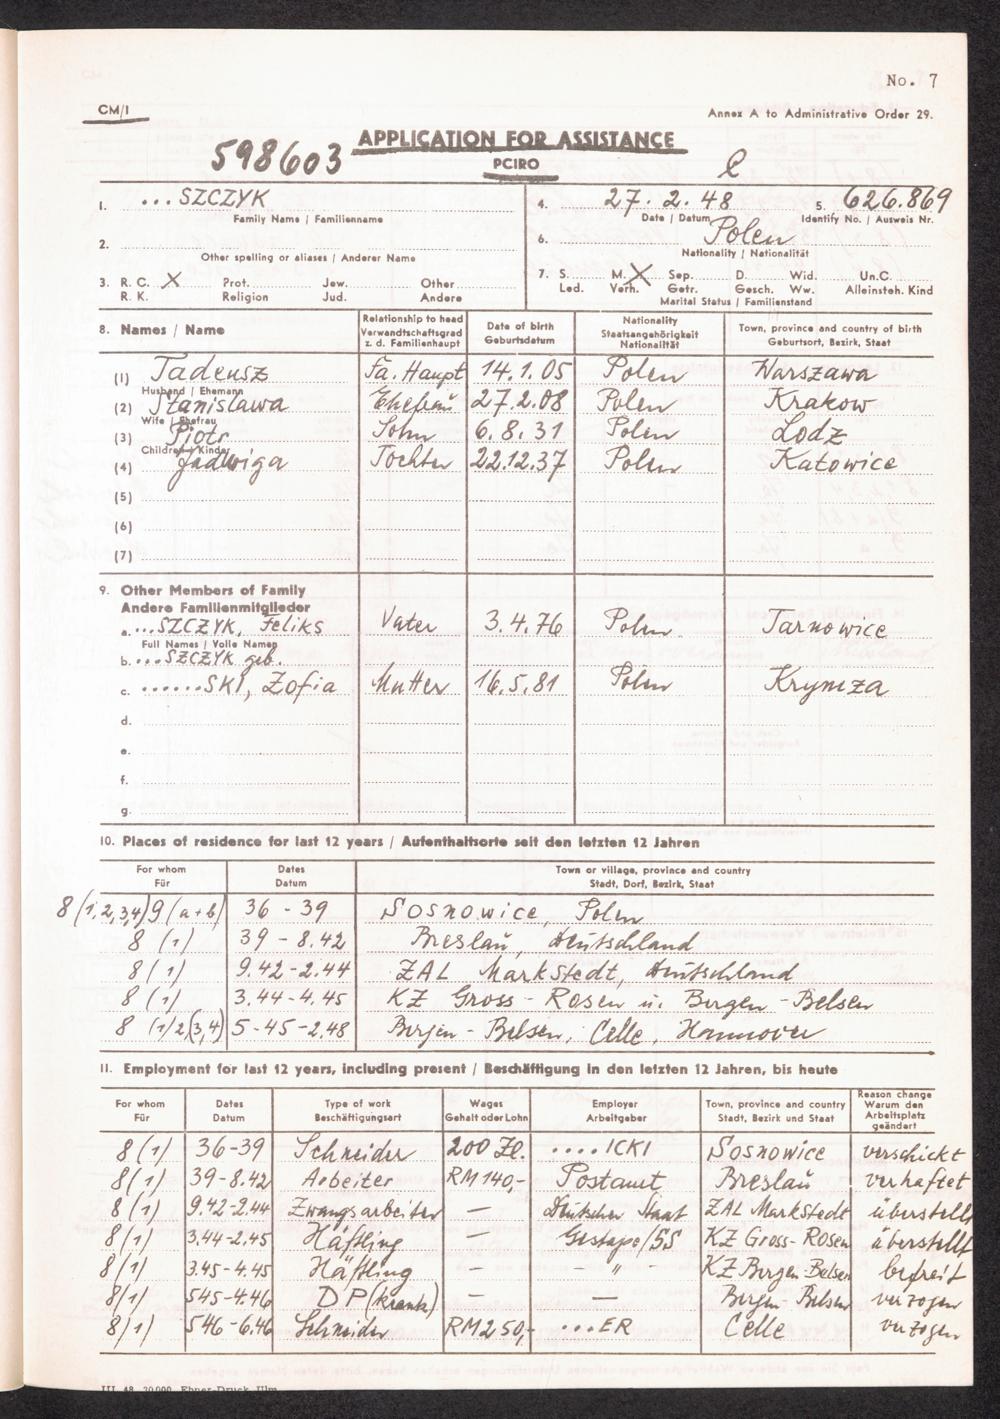 No. 7
CM/I
Annex A to Administrative Order 29.
598603
APPLICATION FOR ASSISTANCE
PCIRO
1. ...SZCZYK
Family Name / Familienname
2.
Other spelling or aliases / Anderer Name
3. R. C. X Prot. Jew. Other
R. K. Religion Jud. Andere
4. 27.2.48 5. 626.869
Date / Datum Identify No. / Ausweis Nr.
6. Polen
Nationality / Nationalität
7. S. M. X Sep. D. Wid. Un.C.
Led. Verh. Getr. Gesch. Ww. Alleinsteh. Kind
Marital Status / Familienstand
8. Names / Name
Relationship to head
Verwandtschaftsgrad
z. d. Familienhaupt
Date of birth
Geburtsdatum
Nationality
Staatsangehörigkeit
Nationalität
Town, province and country of birth
Geburtsort, Bezirk, Staat
(1) Tadeusz Fa. Haupt 14.1.05 Polen Warszawa
Husband / Ehemann
(2) Stanislawa Ehefrau 27.2.08 Polen Krakow
Wife / Ehefrau
(3) Piotr Sohn 6.8.31 Polen Lodz
Children / Kinder
(4) Jadwiga Tochter 22.12.37 Polen Katowice
(5)
(6)
(7)
9. Other Members of Family
Andere Familienmitglieder
a. ...SZCZYK, Feliks Vater 3.4.76 Polen Tarnowice
Full Names / Volle Namen
b. ...SZCZYK geb.
c. ......SKI, Zofia Mutter 16.5.81 Polen Krynica
d.
e.
f.
g.
10. Places of residence for last 12 years / Aufenthaltsorte seit den letzten 12 Jahren
For whom
Für
Dates
Datum
Town or village, province and country
Stadt, Dorf, Bezirk, Staat
8 (1,2,3,4) 9 (a+b) 36 - 39 Sosnowice, Polen
8 (1) 39 - 8.42 Breslau, Deutschland
8 (1) 9.42 - 2.44 ZAL Markstedt, Deutschland
8 (1) 3.44 - 4.45 KZ Gross-Rosen u. Bergen-Belsen
8 (1,2,3,4) 5-45 - 2.48 Bergen-Belsen, Celle, Hannover
11. Employment for last 12 years, including present / Beschäftigung in den letzten 12 Jahren, bis heute
For whom
Für
Dates
Datum
Type of work
Beschäftigungsart
Wages
Gehalt oder Lohn
Employer
Arbeitgeber
Town, province and country
Stadt, Bezirk und Staat
Reason change
Warum den
Arbeitsplatz
geändert
8 (1) 36-39 Schneider 200 Zl. ....ICKI Sosnowice verschickt
8 (1) 39-8.42 Arbeiter RM 140,- Postamt Breslau verhaftet
8 (1) 9.42-2.44 Zwangsarbeiter — Deutscher Staat ZAL Markstedt überstellt
8 (1) 3.44-2.45 Häftling — Gestapo/SS KZ Gross-Rosen überstellt
8 (1) 3.45-4.45 Häftling - - " - KZ Bergen-Belsen befreit
8 (1) 545-4.46 DP (krank) — — Bergen-Belsen verzogen
8 (1) 546-6.46 Schneider RM 250,- ...ER Celle verzogen
III 48 20 000 Ebner-Druck Ulm